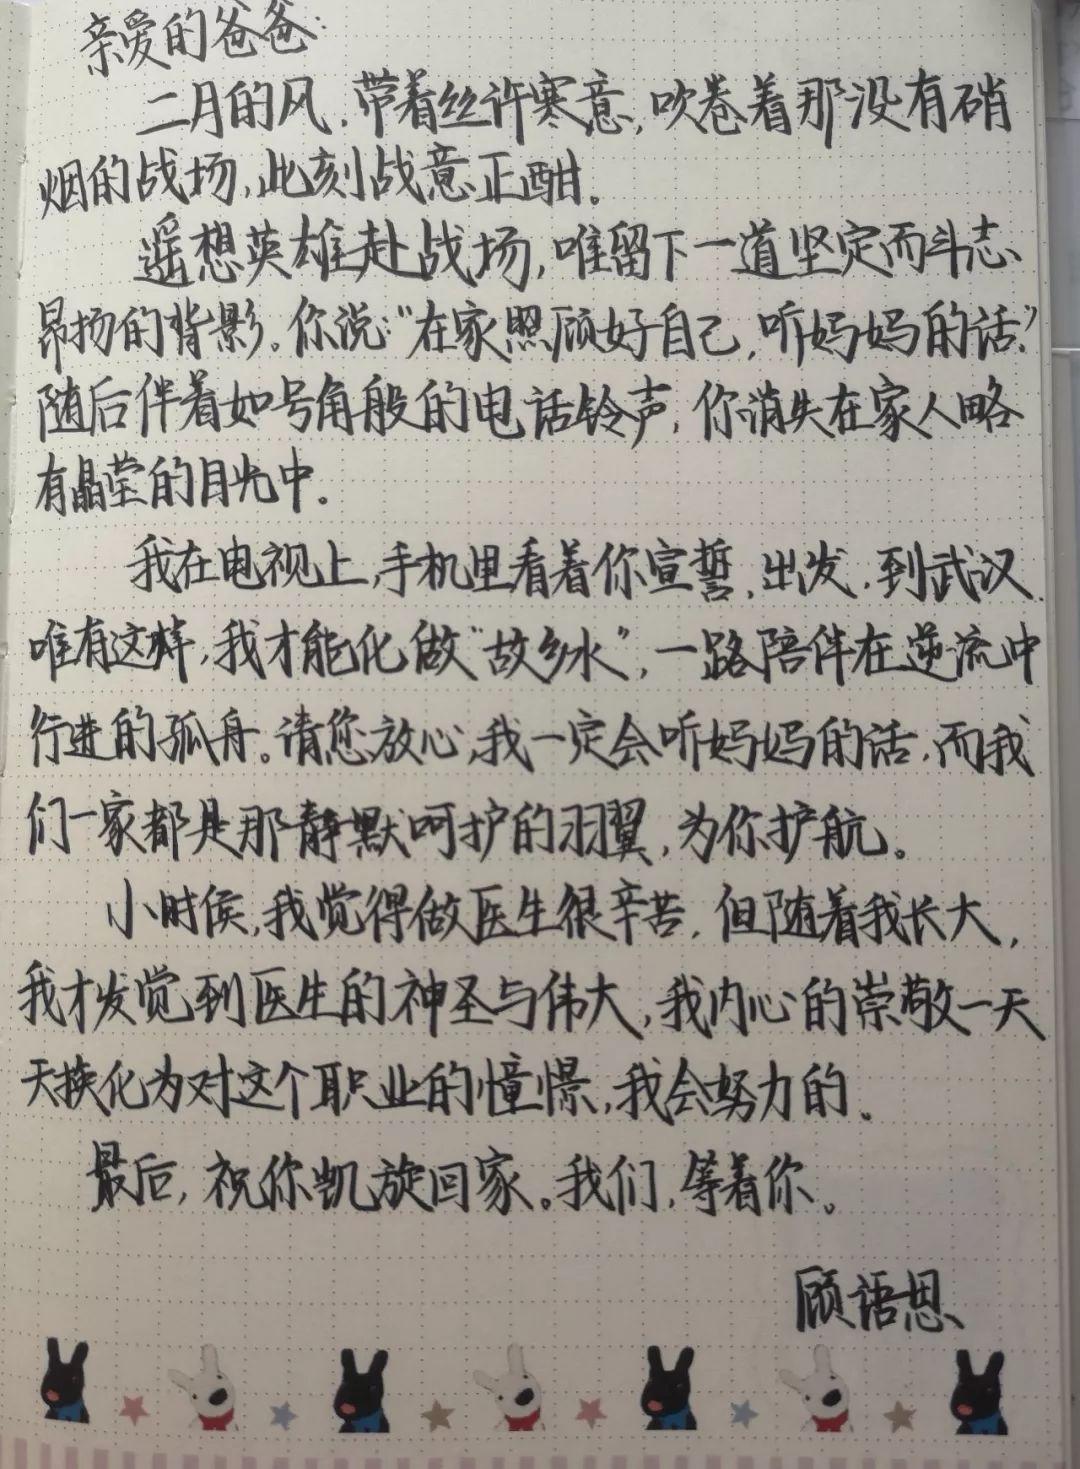 亲爱的爸爸:
二月的风,带着丝许寒意,吹卷着那没有硝
烟的战场,此刻战意正酣。
遥想英雄赴战场,唯留下一道坚定而斗志
昂扬的背影。你说:“在家照顾好自己,听妈妈的话.”
随后伴着如号角般的电话铃声,你消失在家人略
有晶莹的目光中。
我在电视上,手机里看着你宣誓,出发,到武汉.
唯有这样,我才能化做“故乡水”,一路陪伴在逆流中
行进的孤舟。请您放心,我一定会听妈妈的话,而我
们一家都是那静默呵护的羽翼,为你护航。
小时侯,我觉得做医生很辛苦,但随着我长大,
我才发觉到医生的神圣与伟大,我内心的崇敬一天
天换化为对这个职业的憧憬,我会努力的。
最后,祝你凯旋回家。我们,等着你。
顾语恩